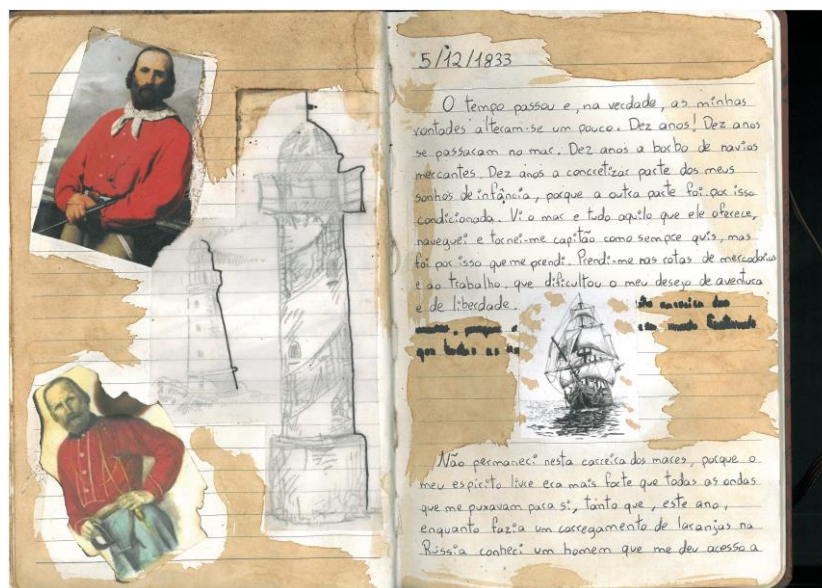 5/12/1833
O tempo passou e, na verdade, as minhas
vontades alteram-se um pouco. Dez anos! Dez anos
se passaram no mar. Dez anos a borbo de navios
mercantes. Dez anos a concretizar parte dos meus
sonhos de infância, porque a outra parte foi por isso
condicionada. Vi o mar e tudo aquilo que ele oferece,
naveguei e tornei-me capitão como sempre quis, mas
foi por isso que me prendi. Prendi-me nas rotas de mercadorias
e ao trabalho, que dificultou o meu desejo de aventura
e de liberdade.
que todas as
Não permaneci nesta carreira dos mares, porque o
meu espírito livre era mais forte que todas as ondas
que me puxavam para si, tanto que, este ano,
enquanto fazia um carregamento de laranjas na
Rússia conheci um homem que me deu acesso a